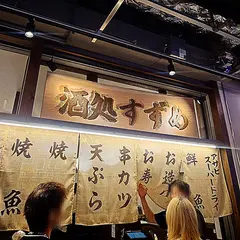 酒処すずめ
アサヒ
スーパードライ
鮮魚
お造り
お寿司
串カツ
天ぷら
焼
焼
魚